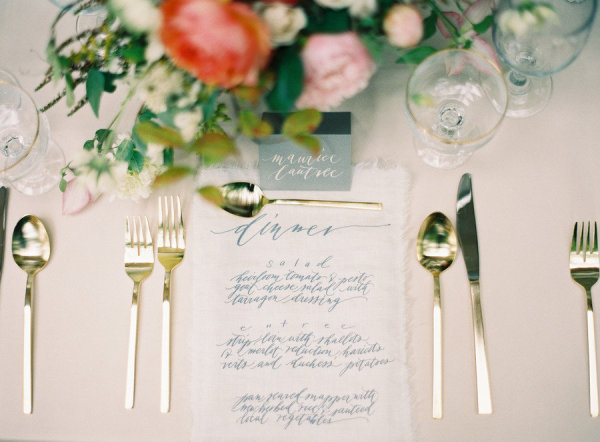 maurice
lautree
dinner
salad
heirloom tomato & pesto
goat cheese salad with
tarragon dressing
entree
strip loin with shallots
& merlot reduction, haricots
verts and duchess potatoes
pan seared snapper with
herbed rice & sauteed
local vegetables